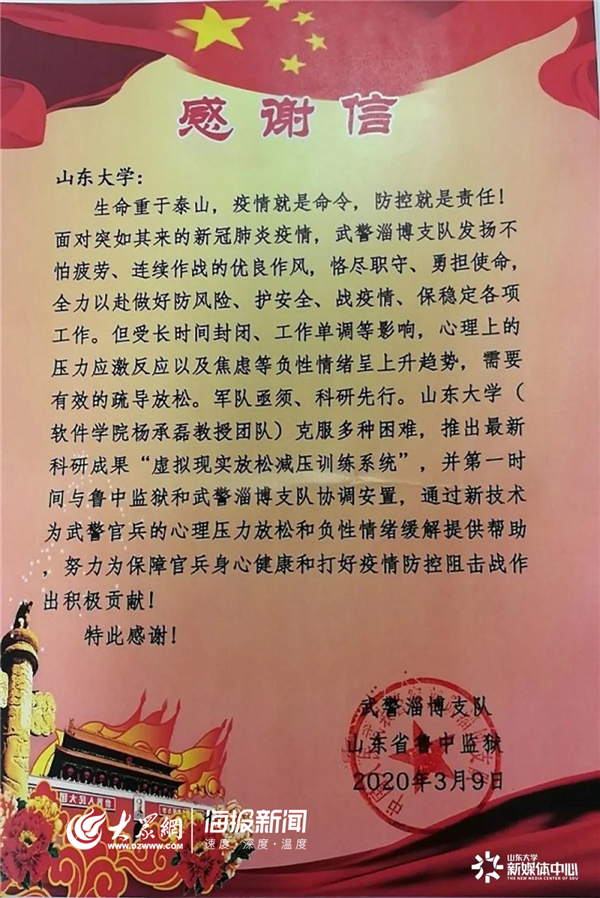 感谢信
山东大学：
生命重于泰山，疫情就是命令，防控就是责任！
面对突如其来的新冠肺炎疫情，武警淄博支队发扬不
怕疲劳、连续作战的优良作风，恪尽职守、勇担使命，
全力以赴做好防风险、护安全、战疫情、保稳定各项
工作。但受长时间封闭、工作单调等影响，心理上的
压力应激反应以及焦虑等负性情绪呈上升趋势，需要
有效的疏导放松。军队亟须、科研先行。山东大学（
软件学院杨承磊教授团队）克服多种困难，推出最新
科研成果“虚拟现实放松减压训练系统”，并第一时
间与鲁中监狱和武警淄博支队协调安置，通过新技术
为武警官兵的心理压力放松和负性情绪缓解提供帮助
，努力为保障官兵身心健康和打好疫情防控阻击战作
出积极贡献！
特此感谢！
武警淄博支队
山东省鲁中监狱
2020年3月9日
大众网 海报新闻
www.dzwww.com 速度·深度·温度
山东大学
新媒体中心
THE NEW MEDIA CENTER OF SDU